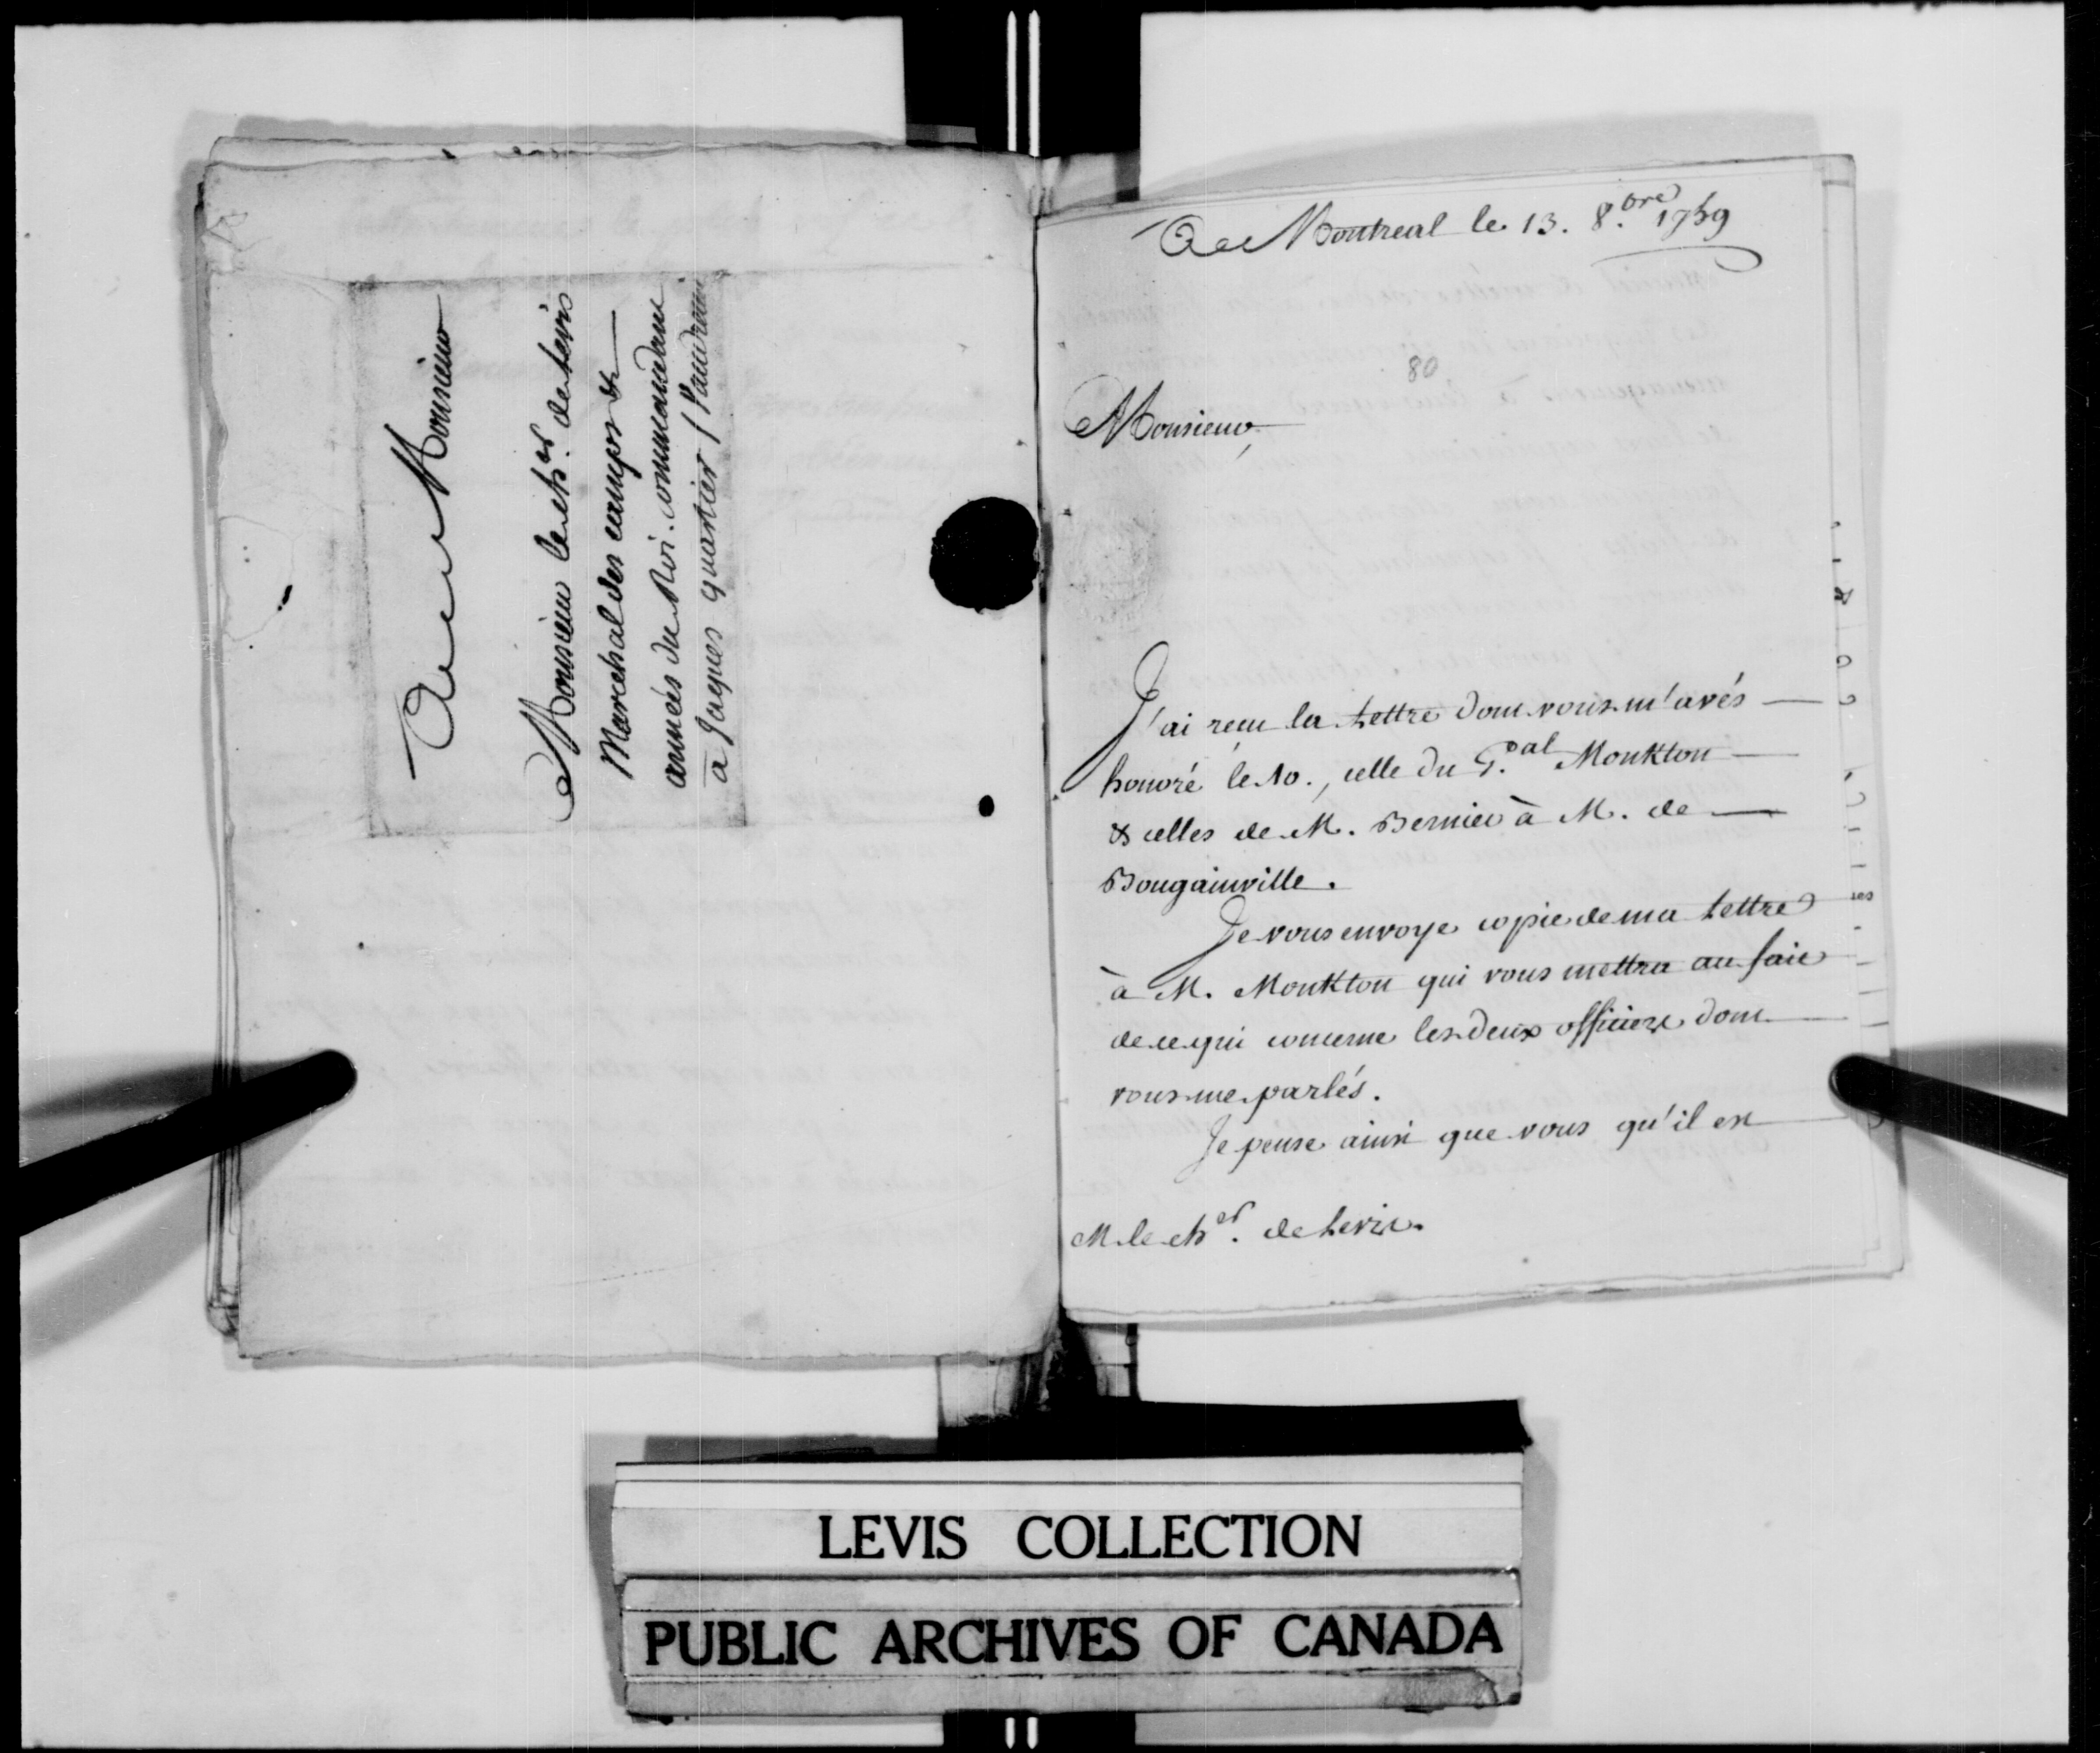 A Monsieur
Monsieur le ch.er de Levis
Marechal des camps &
armées du Roi. commandant
à Jaques quartier / Vaudreuil
A Montreal le 13. 8.bre 1759
80
Monsieur,
J'ai reçu la Lettre dont vous m'avés
honoré le 10., celle du G.al Monkton
& celles de M. Bernier à M. de
Bougainville.
Je vous envoye copie de ma Lettre
à M. Monkton qui vous mettra au fait
de ce qui concerne les deux officiers dont
vous me parlés.
Je pense ainsi que vous qu'il est
M. le ch.er de Levis.
LEVIS COLLECTION
PUBLIC ARCHIVES OF CANADA